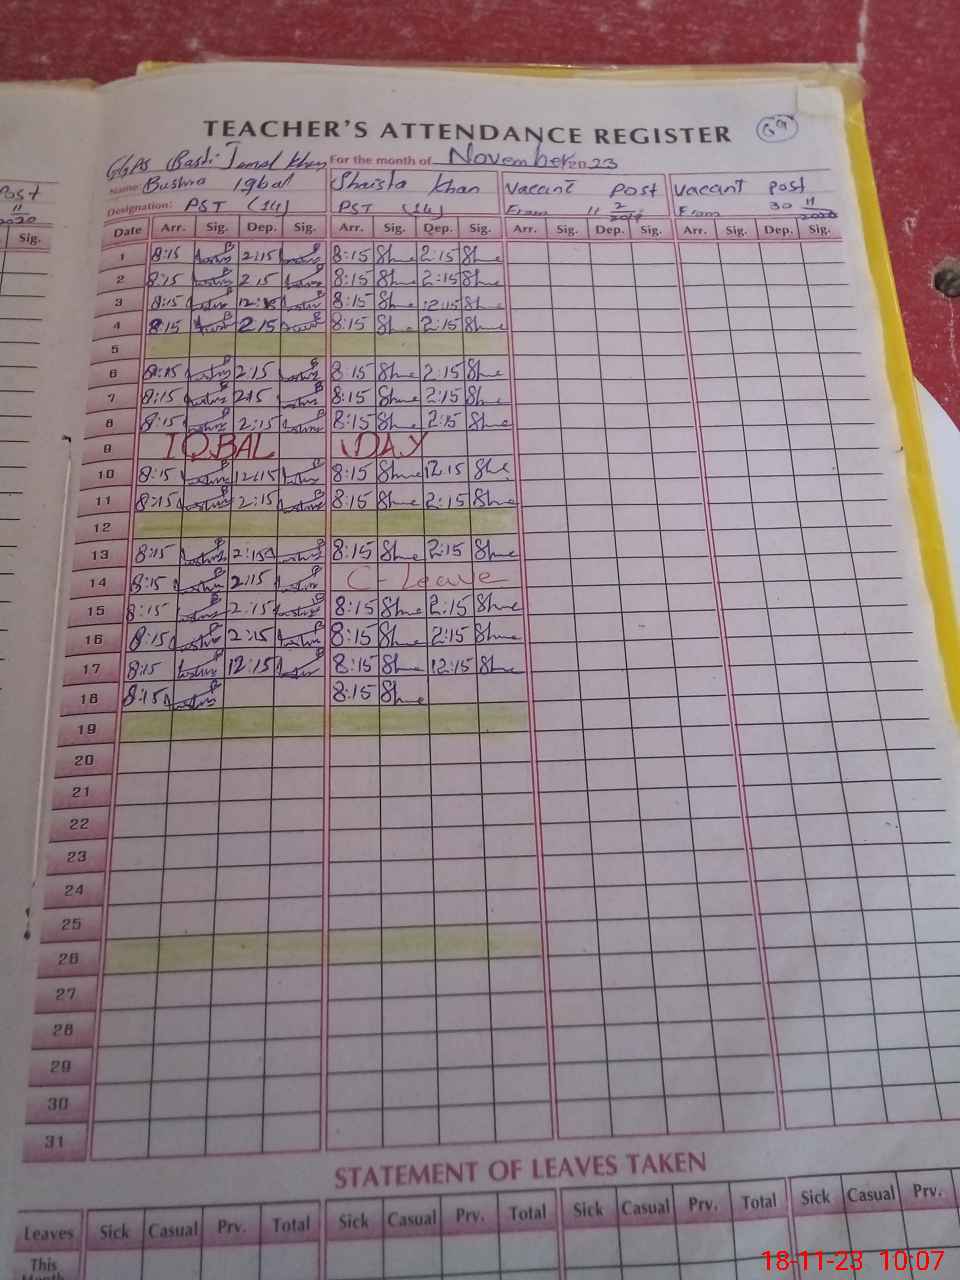 Post
11
2020
Sig.
TEACHER'S ATTENDANCE REGISTER 69
GGPS Basti Jamal Khan For the month of November 2023
Name Bushra Iqbal Shaista Khan Vacant Post Vacant Post
Designation: PST (14) PST (14) From 11 2 From 30 11 2020
Date Arr. Sig. Dep. Sig. Arr. Sig. Dep. Sig. Arr. Sig. Dep. Sig. Arr. Sig. Dep. Sig.
1 8:15 2:15 8:15 She 2:15 She
2 8:15 2:15 8:15 She 2:15 She
3 8:15 12:15 8:15 She 12:15 She
4 8:15 2:15 8:15 She 2:15 She
5
6 8:15 2:15 8:15 She 2:15 She
7 8:15 2:15 8:15 She 2:15 She
8 8:15 2:15 8:15 She 2:15 She
9 IQBAL DAY
10 8:15 12:15 8:15 She 12:15 She
11 8:15 2:15 8:15 She 2:15 She
12
13 8:15 2:15 8:15 She 2:15 She
14 8:15 2:15 C-Leave
15 8:15 2:15 8:15 She 2:15 She
16 8:15 2:15 8:15 She 2:15 She
17 8:15 12:15 8:15 She 12:15 She
18 8:15 8:15 She
19
20
21
22
23
24
25
26
27
28
29
30
31
STATEMENT OF LEAVES TAKEN
Leaves Sick Casual Prv. Total Sick Casual Prv. Total Sick Casual Prv. Total Sick Casual Prv.
This
Month
18-11-23 10:07